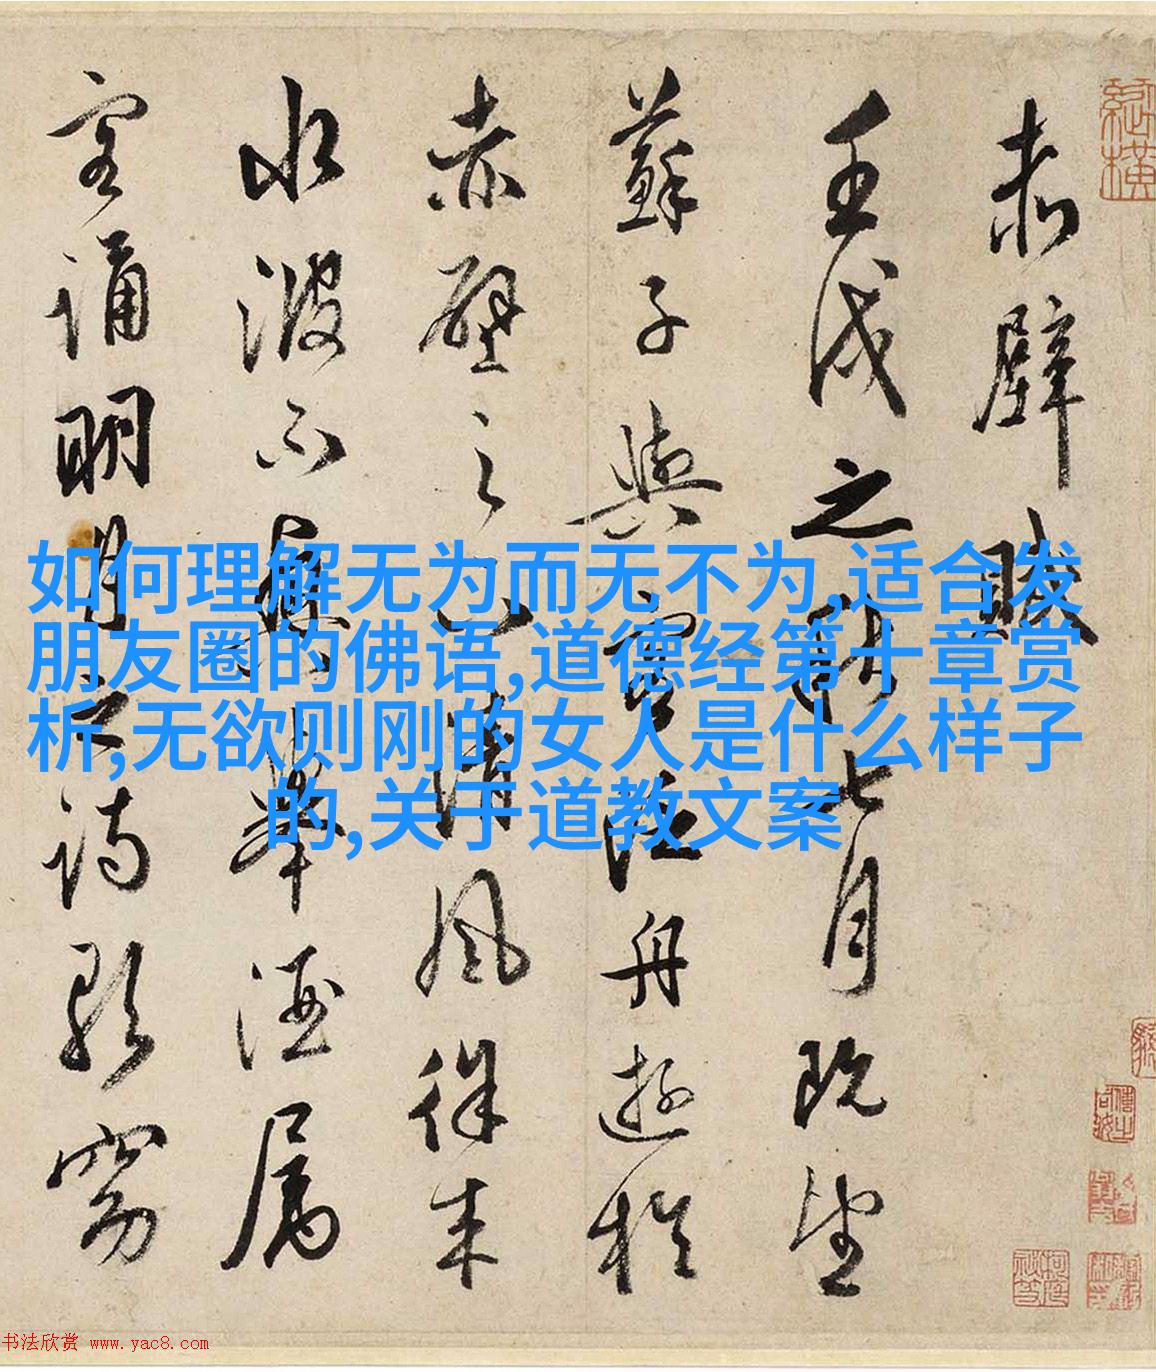 赤壁賦
壬戌之秋七月既望
蘇子與客泛舟遊於
赤壁之下清風徐来
水波不興舉酒屬
客誦明月之詩歌窈
如何理解无为而无不为,适合发
朋友圈的佛语,道德经第十章赏
析,无欲则刚的女人是什么样子
的,关于道教文案
书法欣赏 www.yac8.com